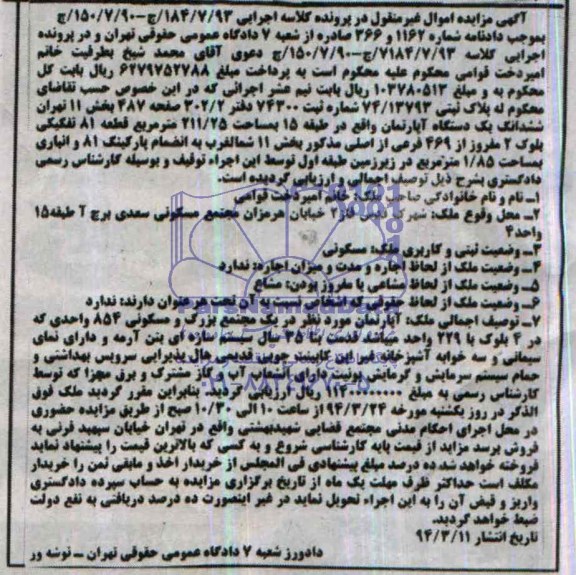 آگهی مزایده اموال غیرمنقول در پرونده کلاسه اجرایی ۱۸۴/۷/۹۳/ج-۱۵۰/۷/۹۰/ج
بموجب دادنامه شماره ۱۱۶۲ و ۳۶۶ صادره از شعبه ۷ دادگاه عمومی حقوقی تهران و در پرونده
اجرایی کلاسه ۷۱۸۴/۷/۹۳/ج-۱۵۰/۷/۹۰/ج دعوی آقای محمد شیخ بطرفیت خانم
امیردخت قوامی محکوم علیه محکوم است به پرداخت مبلغ ۶۲۷۹۷۵۲۷۸۸ ریال بابت کل
محکوم به و مبلغ ۱۰۳۷۸۰۵۱۳ ریال بابت نیم عشر اجرائی که در این خصوص حسب تقاضای
محکوم له پلاک ثبتی ۷۴/۱۳۷۹۳ شماره ثبت ۷۴۳۰۰ دفتر ۳۰۲/۲ صفحه ۴۸۷ بخش ۱۱ تهران
ششدانگ یک دستگاه آپارتمان واقع در طبقه ۱۵ بمساحت ۲۱۱/۲۵ مترمربع قطعه ۸۱ تفکیکی
بلوک ۲ مفروز از ۴۶۹ فرعی از اصلی مذکور بخش ۱۱ شمالغرب به انضمام پارکینگ ۸۱ و انباری
بمساحت ۱/۸۵ مترمربع در زیرزمین طبقه اول توسط این اجراء توقیف و بوسیله کارشناس رسمی
دادگستری بشرح ذیل توصیف اجمالی و ارزیابی گردیده است.
۱ـ نام و نام خانوادگی صاحب ملک: خانم امیردخت قوامی
۲ـ محل وقوع ملک: شهرک قدس فاز۲ خیابان هرمزان مجتمع مسکونی سعدی برج آ طبقه۱۵
واحد۴
۳ـ وضعیت ثبتی و کاربری ملک: مسکونی
۴ـ وضعیت ملک از لحاظ اجاره و مدت و میزان اجاره: ندارد
۵ـ وضعیت ملک از لحاظ مشاعی یا مفروز بودن: مشاع
۶ـ وضعیت ملک از لحاظ حقوقی که اشخاص نسبت به آن تحت هر عنوان دارند: ندارد
۷ـ توصیف اجمالی ملک: آپارتمان مورد نظر در یک مجتمع بزرگ و مسکونی ۸۵۴ واحدی که
در ۴ بلوک با ۲۲۹ واحد میباشد قدمت بنا ۳۵ سال سیستم سازه ای بتن آرمه و دارای نمای
سیمانی و سه خوابه آشپزخانه غیر اپن کابینت چوبی قدیمی هال پذیرایی سرویس بهداشتی و
حمام سیستم سرمایش و گرمایش یونیت دارای انشعاب آب و گاز مشترک و برق مجزا که توسط
کارشناس رسمی به مبلغ ۱۱۴۰۰۰۰۰۰۰۰ ریال ارزیابی گردید. بنابراین مقرر گردید ملک فوق
الذکر در روز یکشنبه مورخه ۹۴/۳/۲۴ از ساعت ۱۰ الی ۱۰/۳۰ صبح از طریق مزایده حضوری
در محل اجرای احکام مدنی مجتمع قضایی شهیدبهشتی واقع در تهران خیابان سپهبد قرنی به
فروش برسد مزاید از قیمت پایه کارشناسی شروع و به کسی که بالاترین قیمت را پیشنهاد نماید
فروخته خواهد شد.ده درصد مبلغ پیشنهادی فی المجلس از خریدار اخذ و مابقی ثمن را خریدار
مکلف است حداکثر ظرف مهلت یک ماه از تاریخ برگزاری مزایده به حساب سپرده دادگستری
واریز و قبض آن را به این اجراء تحویل نماید در غیر اینصورت ده درصد دریافتی به نفع دولت
ضبط خواهد گردید.
تاریخ انتشار ۹۴/۳/۱۱
دادورز شعبه ۷ دادگاه عمومی حقوقی تهران ـ نوشه ور
ParsNamadData
۰۲۱-۸۸۳۴۹۶۷۰-۵